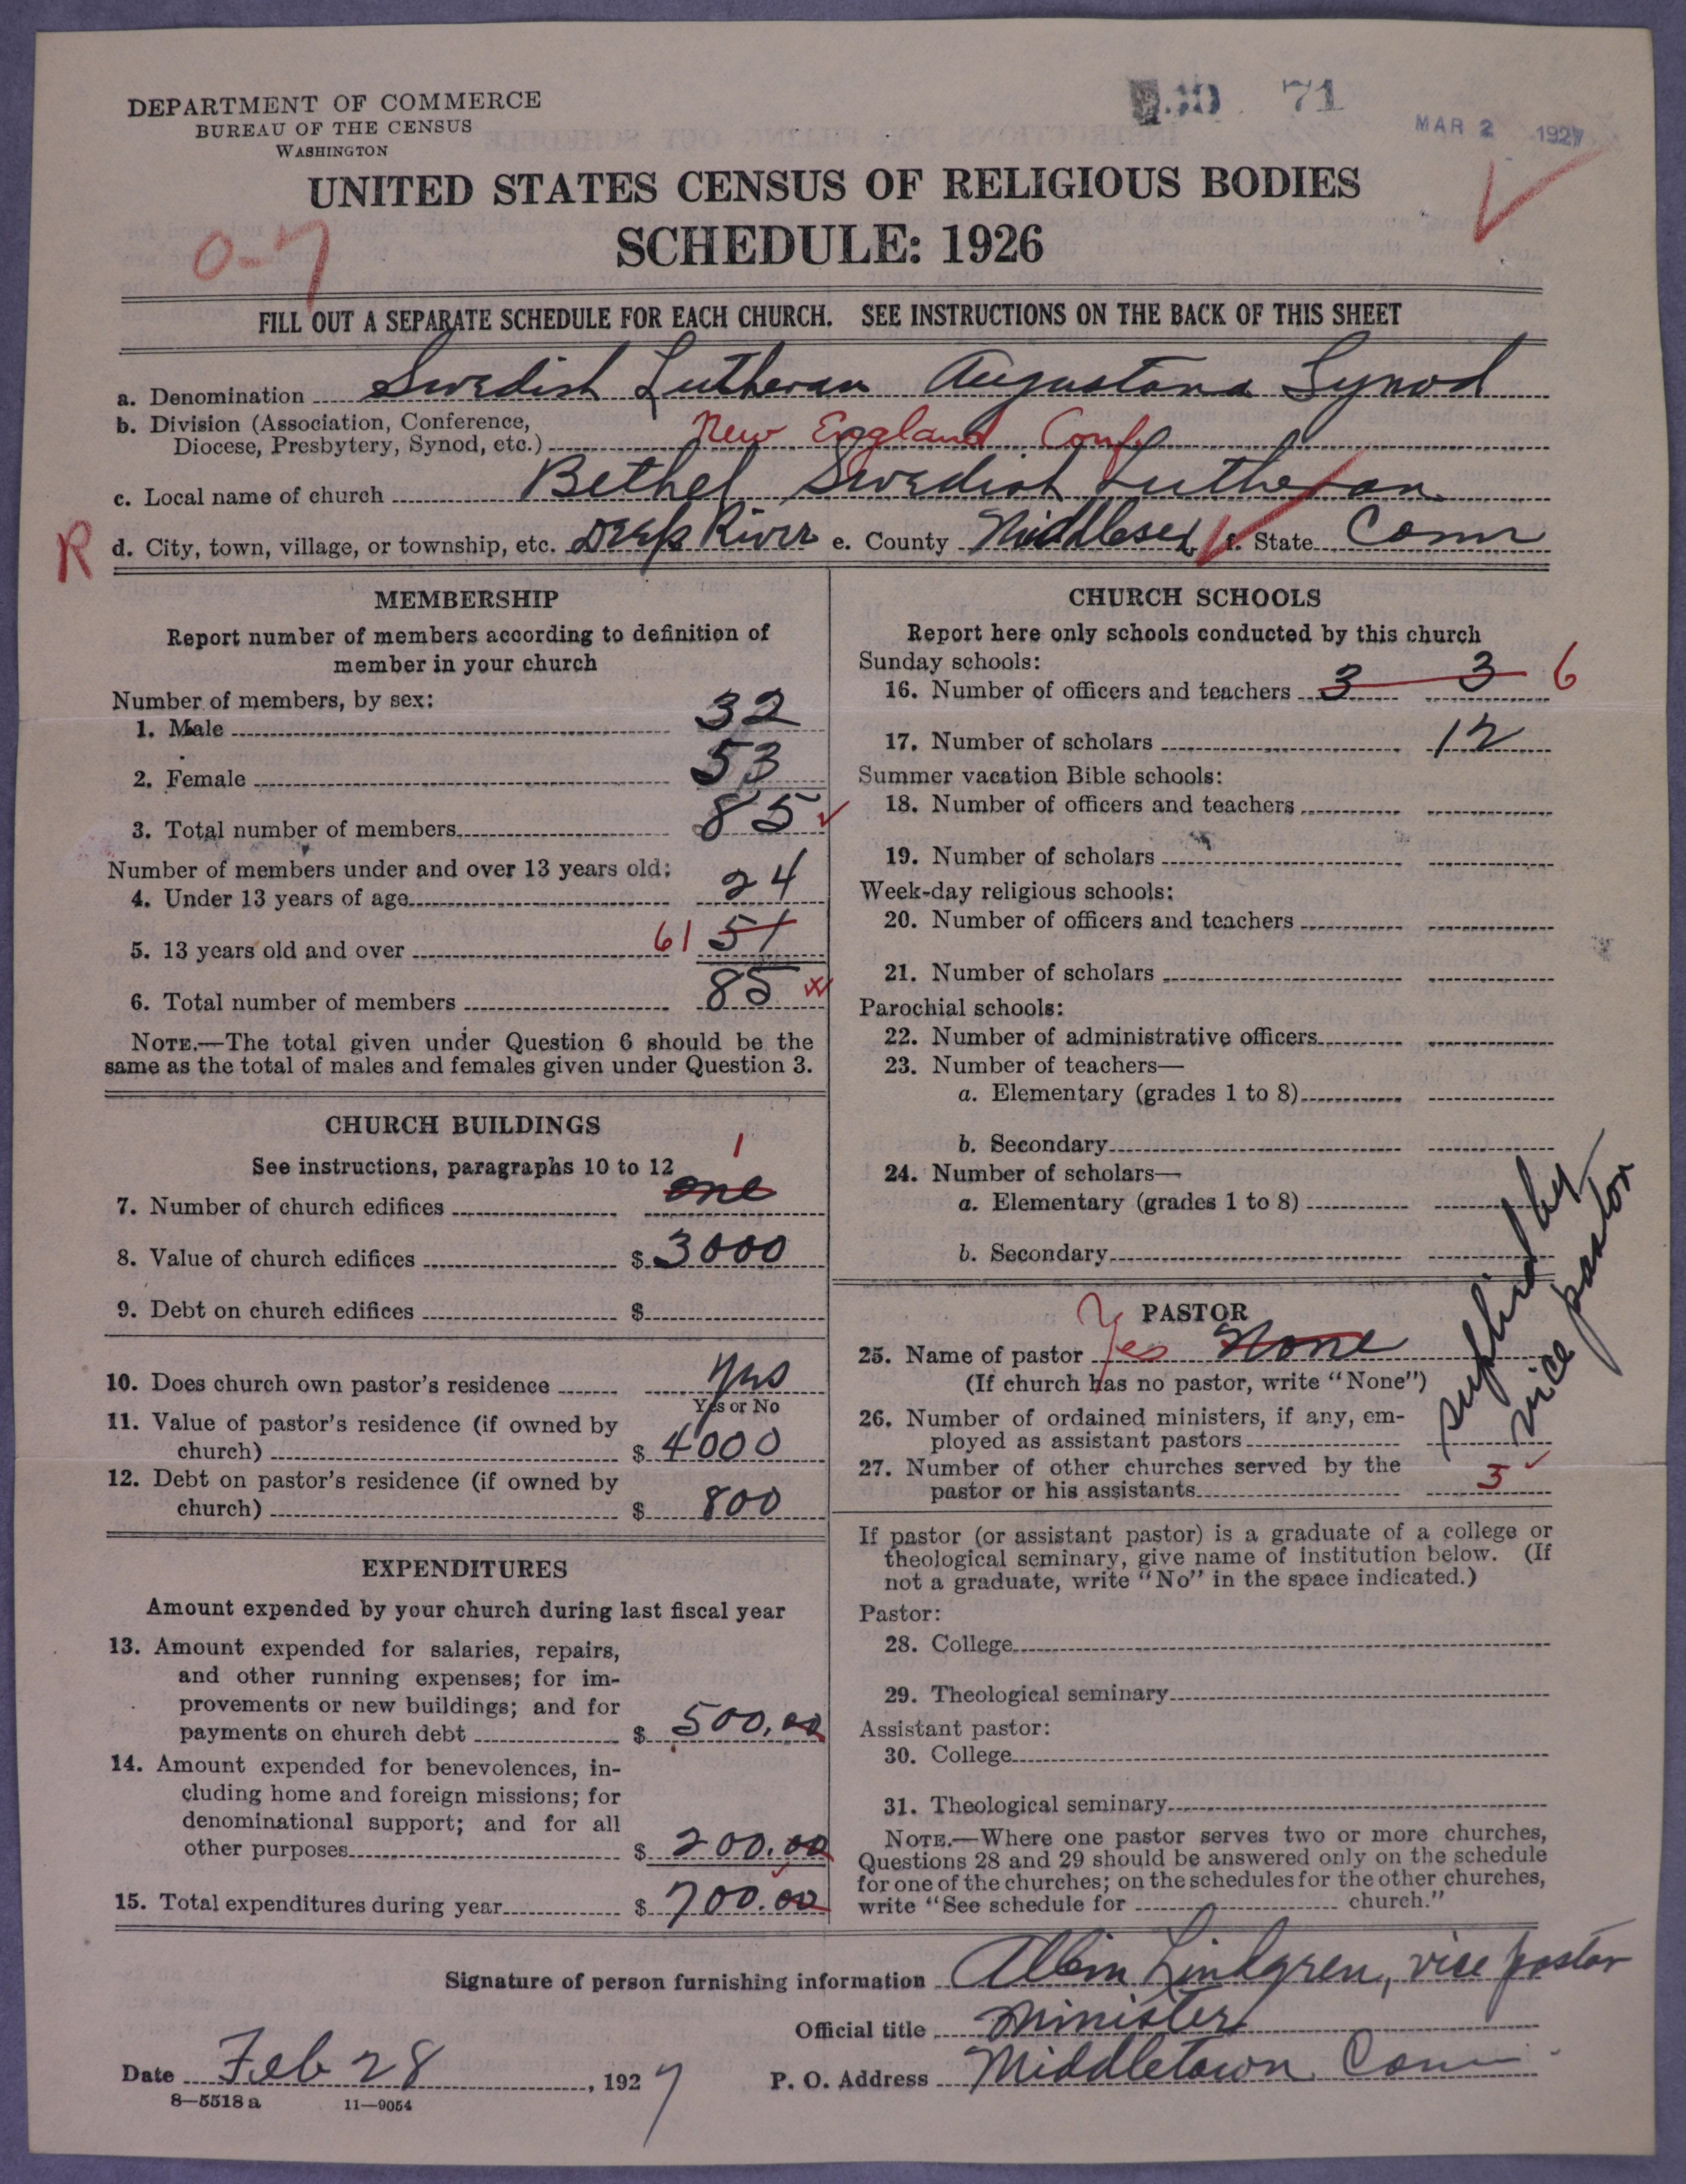 DEPARTMENT OF COMMERCE
BUREAU OF THE CENSUS
WASHINGTON
71
MAR 2 1927
UNITED STATES CENSUS OF RELIGIOUS BODIES
SCHEDULE: 1926
0-7
FILL OUT A SEPARATE SCHEDULE FOR EACH CHURCH. SEE INSTRUCTIONS ON THE BACK OF THIS SHEET
a. Denomination Swedish Lutheran Augustana Synod
b. Division (Association, Conference,
Diocese, Presbytery, Synod, etc.) New England Conf
c. Local name of church Bethel Swedish Lutheran
R d. City, town, village, or township, etc. Deep River e. County Middlesex f. State Conn
MEMBERSHIP
Report number of members according to definition of
member in your church
Number of members, by sex:
1. Male 32
2. Female 53
3. Total number of members 85
Number of members under and over 13 years old:
4. Under 13 years of age 24
5. 13 years old and over 61 51
6. Total number of members 85
NOTE.—The total given under Question 6 should be the
same as the total of males and females given under Question 3.
CHURCH BUILDINGS
See instructions, paragraphs 10 to 12
1
7. Number of church edifices one
8. Value of church edifices $ 3000
9. Debt on church edifices $
10. Does church own pastor's residence Yes
Yes or No
11. Value of pastor's residence (if owned by
church) $ 4000
12. Debt on pastor's residence (if owned by
church) $ 800
EXPENDITURES
Amount expended by your church during last fiscal year
13. Amount expended for salaries, repairs,
and other running expenses; for im-
provements or new buildings; and for
payments on church debt $ 500.00
14. Amount expended for benevolences, in-
cluding home and foreign missions; for
denominational support; and for all
other purposes $ 200.00
15. Total expenditures during year $ 700.00
CHURCH SCHOOLS
Report here only schools conducted by this church
Sunday schools:
16. Number of officers and teachers 3 3 6
17. Number of scholars 12
Summer vacation Bible schools:
18. Number of officers and teachers
19. Number of scholars
Week-day religious schools:
20. Number of officers and teachers
21. Number of scholars
Parochial schools:
22. Number of administrative officers
23. Number of teachers—
a. Elementary (grades 1 to 8)
b. Secondary
24. Number of scholars—
a. Elementary (grades 1 to 8)
b. Secondary
PASTOR
25. Name of pastor Yes None
(If church has no pastor, write "None")
supplied by
vice pastor
26. Number of ordained ministers, if any, em-
ployed as assistant pastors
27. Number of other churches served by the
pastor or his assistants 3
If pastor (or assistant pastor) is a graduate of a college or
theological seminary, give name of institution below. (If
not a graduate, write "No" in the space indicated.)
Pastor:
28. College
29. Theological seminary
Assistant pastor:
30. College
31. Theological seminary
NOTE.—Where one pastor serves two or more churches,
Questions 28 and 29 should be answered only on the schedule
for one of the churches; on the schedules for the other churches,
write "See schedule for church."
Signature of person furnishing information Albin Lindgren, vice pastor
Official title Minister
Date Feb 28, 1927 P. O. Address Middletown Conn
8—5518 a 11—9054